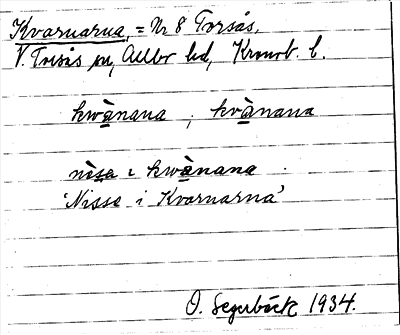 Kvarnarna, = Nr 8 Torsås,
V. Torsås sn, Allbo hd, Kronob. l.
kwànana ; kvànana
nìsa i kwànana .
'Nisse i Kvarnarna'
O. Segerbäck 1934.